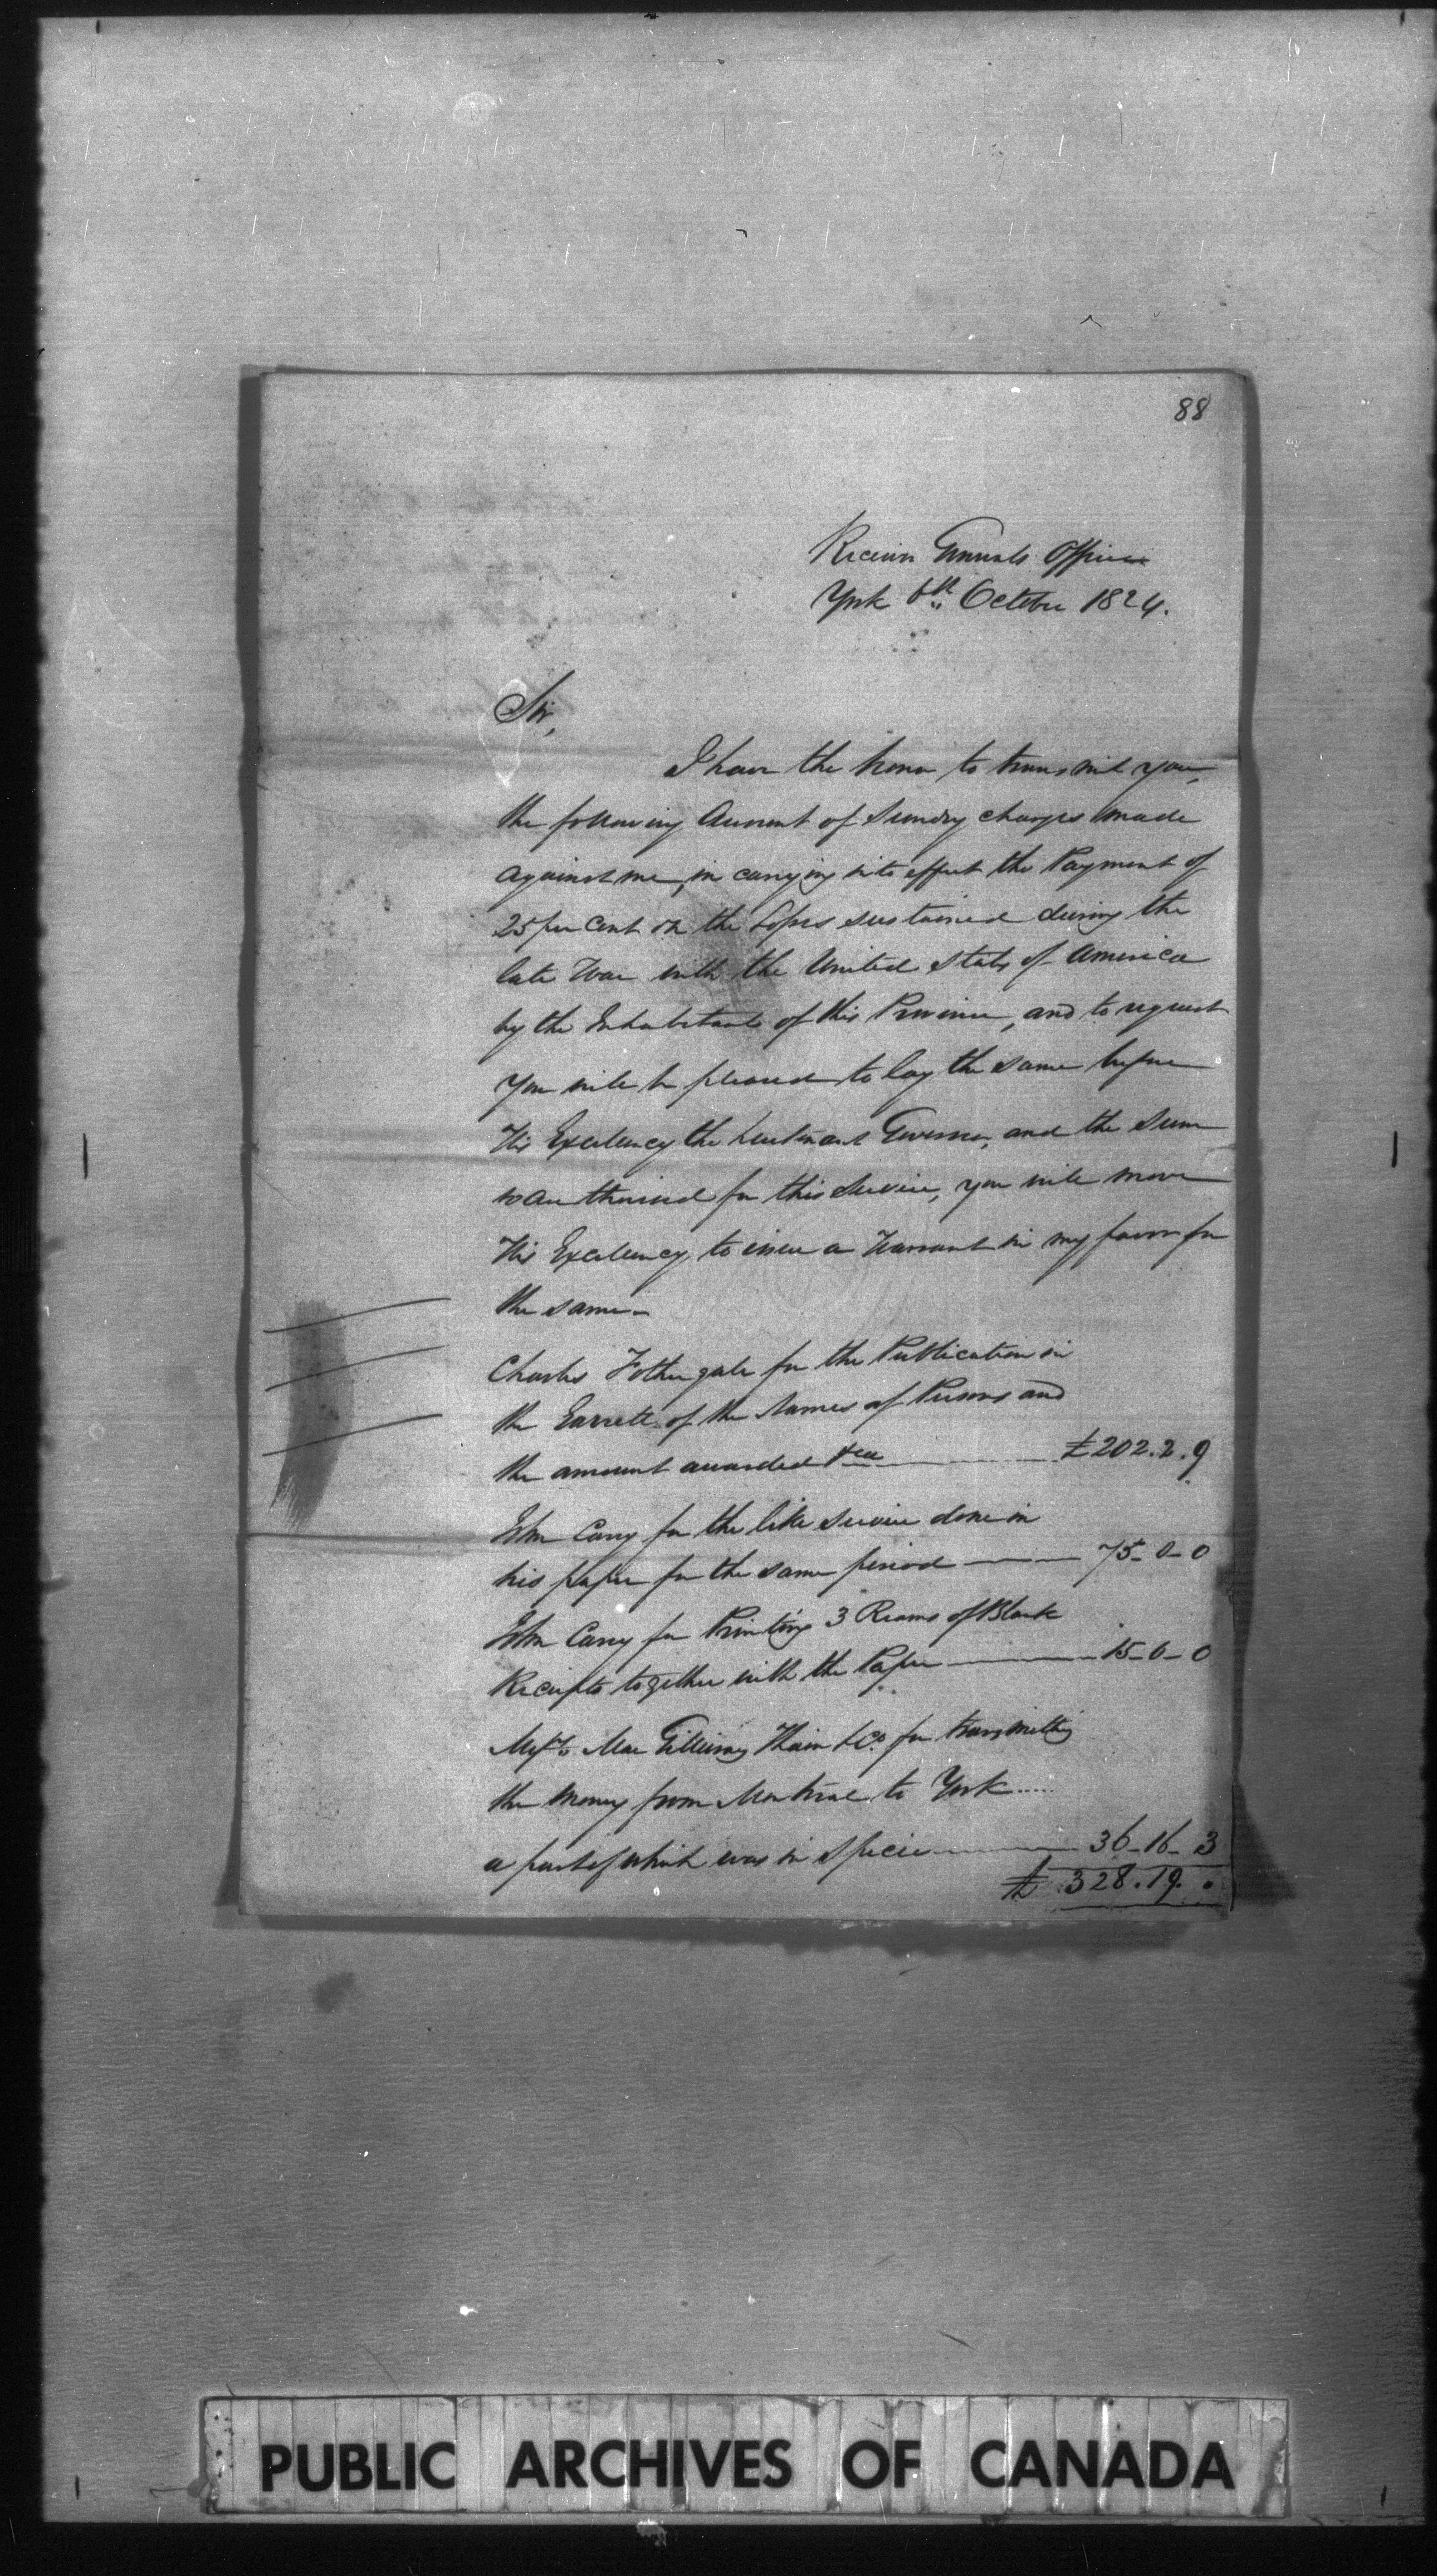 88
Receiver Generals Office
York 6th October 1824.
Sir,
I have the honor to transmit you,
the following Account of Sundry charges made
against me, in carrying into effect the Payment of
25 per Cent on the Losses sustained during the
late War with the United States of America
by the Inhabitants of this Province, and to request
you will be pleased to lay the same before
His Excellency the Lieutenant Governor, and the Sum
so authorised for this Service, you will move
His Excellency to issue a Warrant in my favor for
the same -
Charles Fothergale for the Publication in
the Gazzette of the Names of Persons and
the amount awarded &ca £202.2.9
John Carey for the like Service done in
his paper for the same period 75-0-0
John Carey for Printing 3 Reams of Blank
Receipts together with the Paper 15-0-0
Messrs Mac Gillivray Thain & Co. for transmitting
the Money from Montreal to York
a part of which was in Specie 36-16-3
£ 328.19.
PUBLIC ARCHIVES OF CANADA